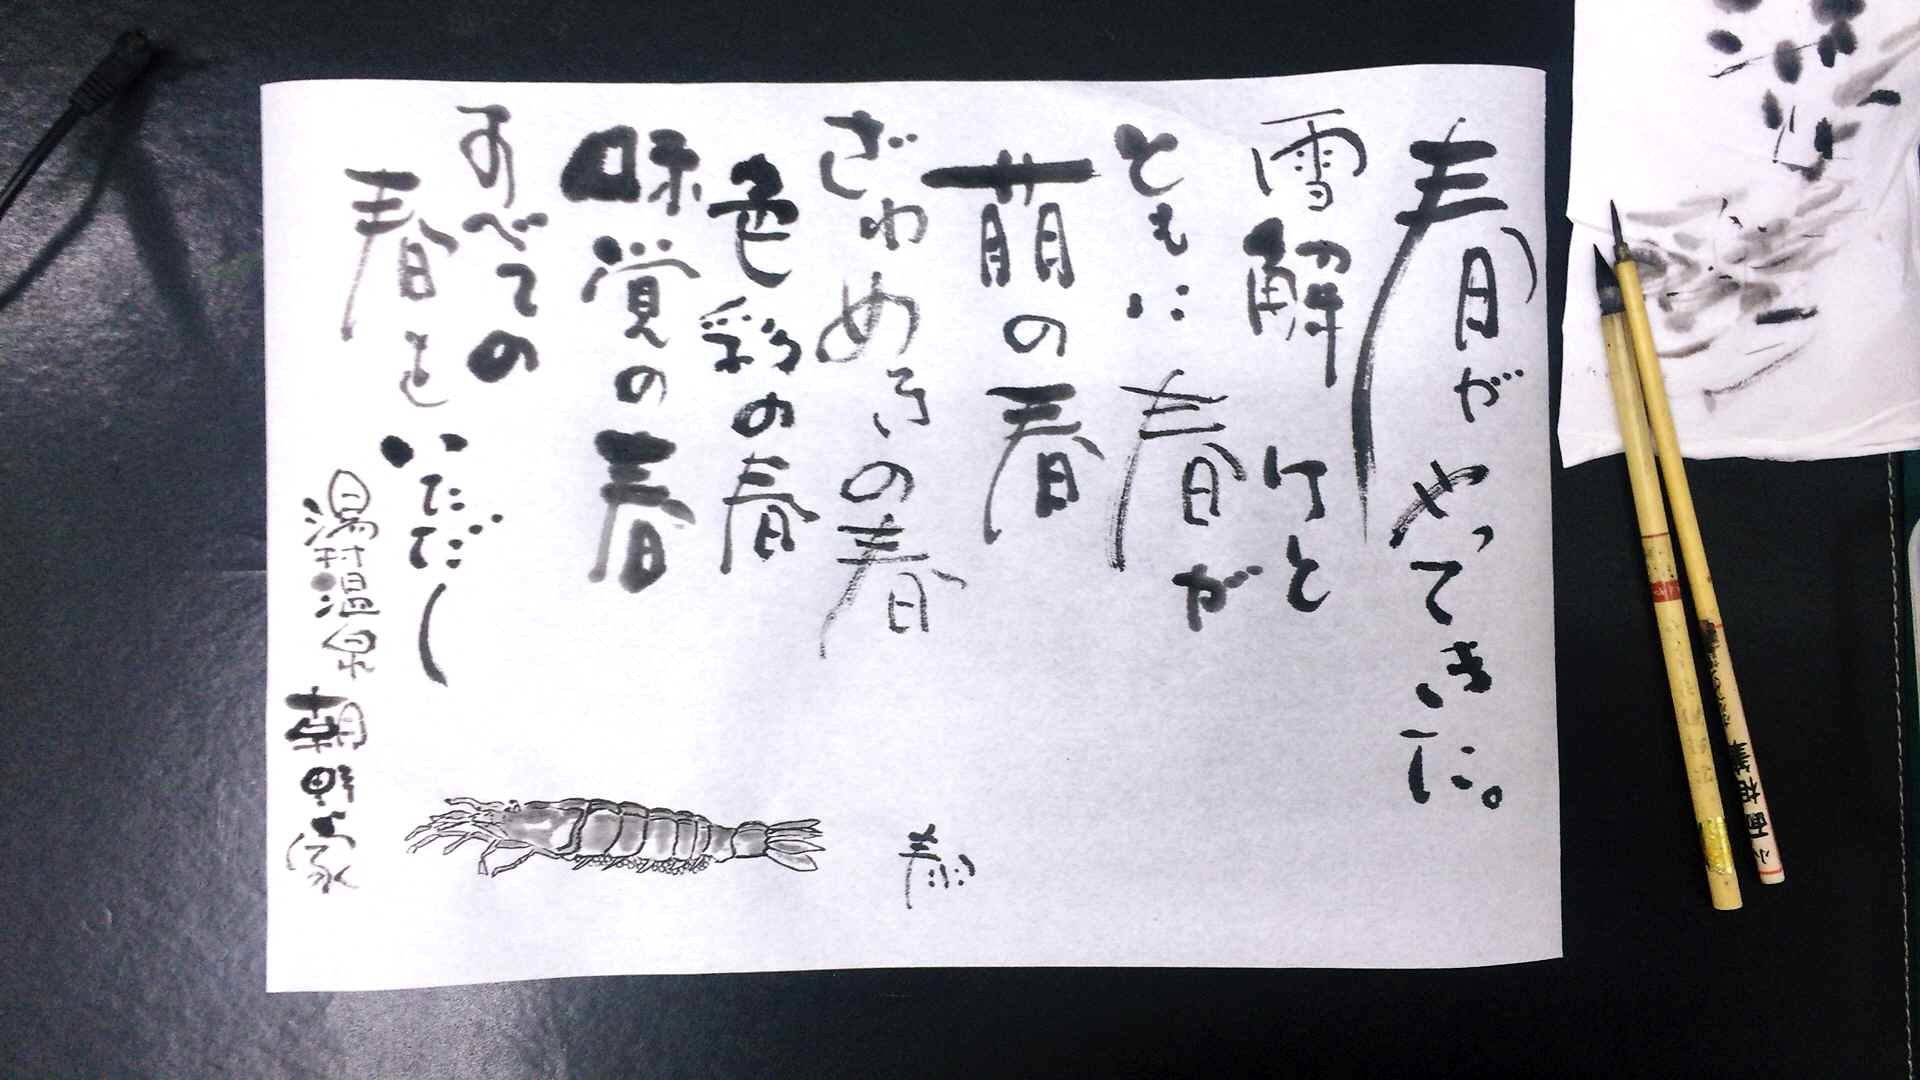 春がやってきた。
雪解けと
ともに春が
萌の春
ざわめきの春
色彩の春
味覚の春
すべての
春をいただく
湯村温泉 朝野家
小 面相筆